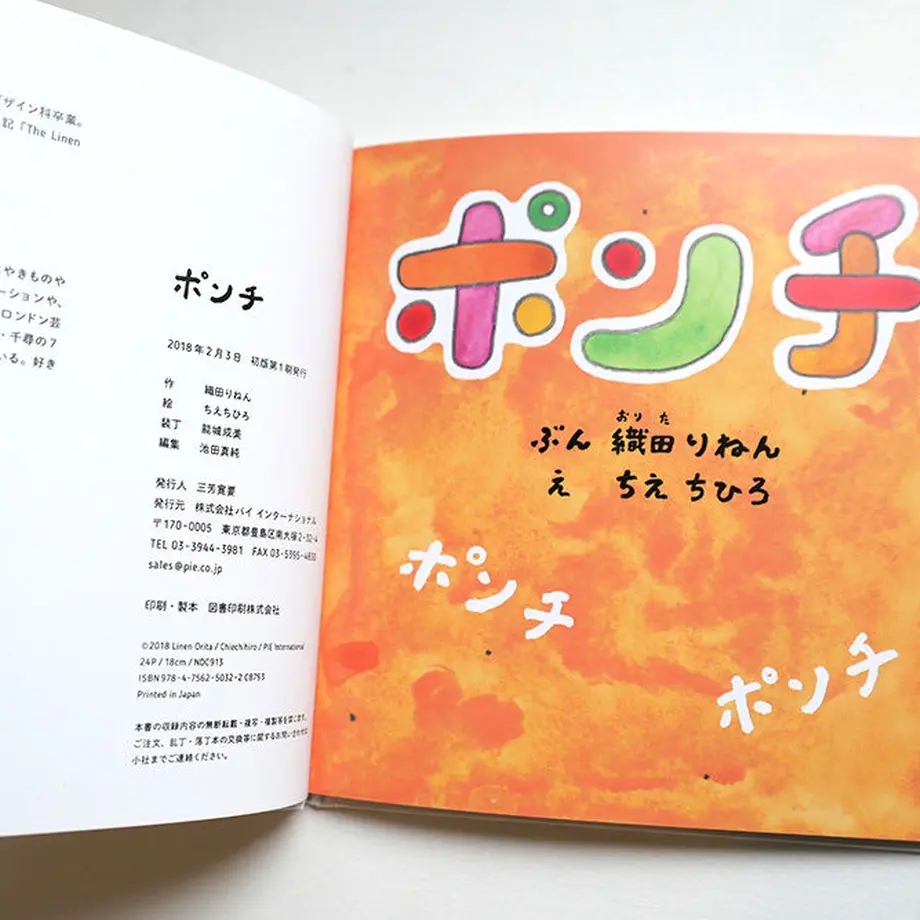 ザイン科卒業。
記「The Linen
やきものや
ーションや、
ロンドン芸
・千尋の7
いる。好き
ポンチ
2018年2月3日 初版第1刷発行
作 織田りねん
絵 ちえちひろ
装丁 能城成美
編集 池田真純
発行人 三芳寛要
発行元 株式会社パイ インターナショナル
〒170-0005 東京都豊島区南大塚2-32-4
TEL 03-3944-3981 FAX 03-5395-4830
sales@pie.co.jp
印刷・製本 図書印刷株式会社
©2018 Linen Orita / Chiechihiro / PIE International
24P / 18cm / NDC913
ISBN 978-4-7562-5032-2 C8793
Printed in Japan
本書の収録内容の無断転載・複写・複製等を禁じます。
ご注文、乱丁・落丁本の交換等に関するお問い合わせは、
小社までご連絡ください。
ポンチ
おりた
ぶん 織田りねん
え ちえちひろ
ポンチ
ポンチ